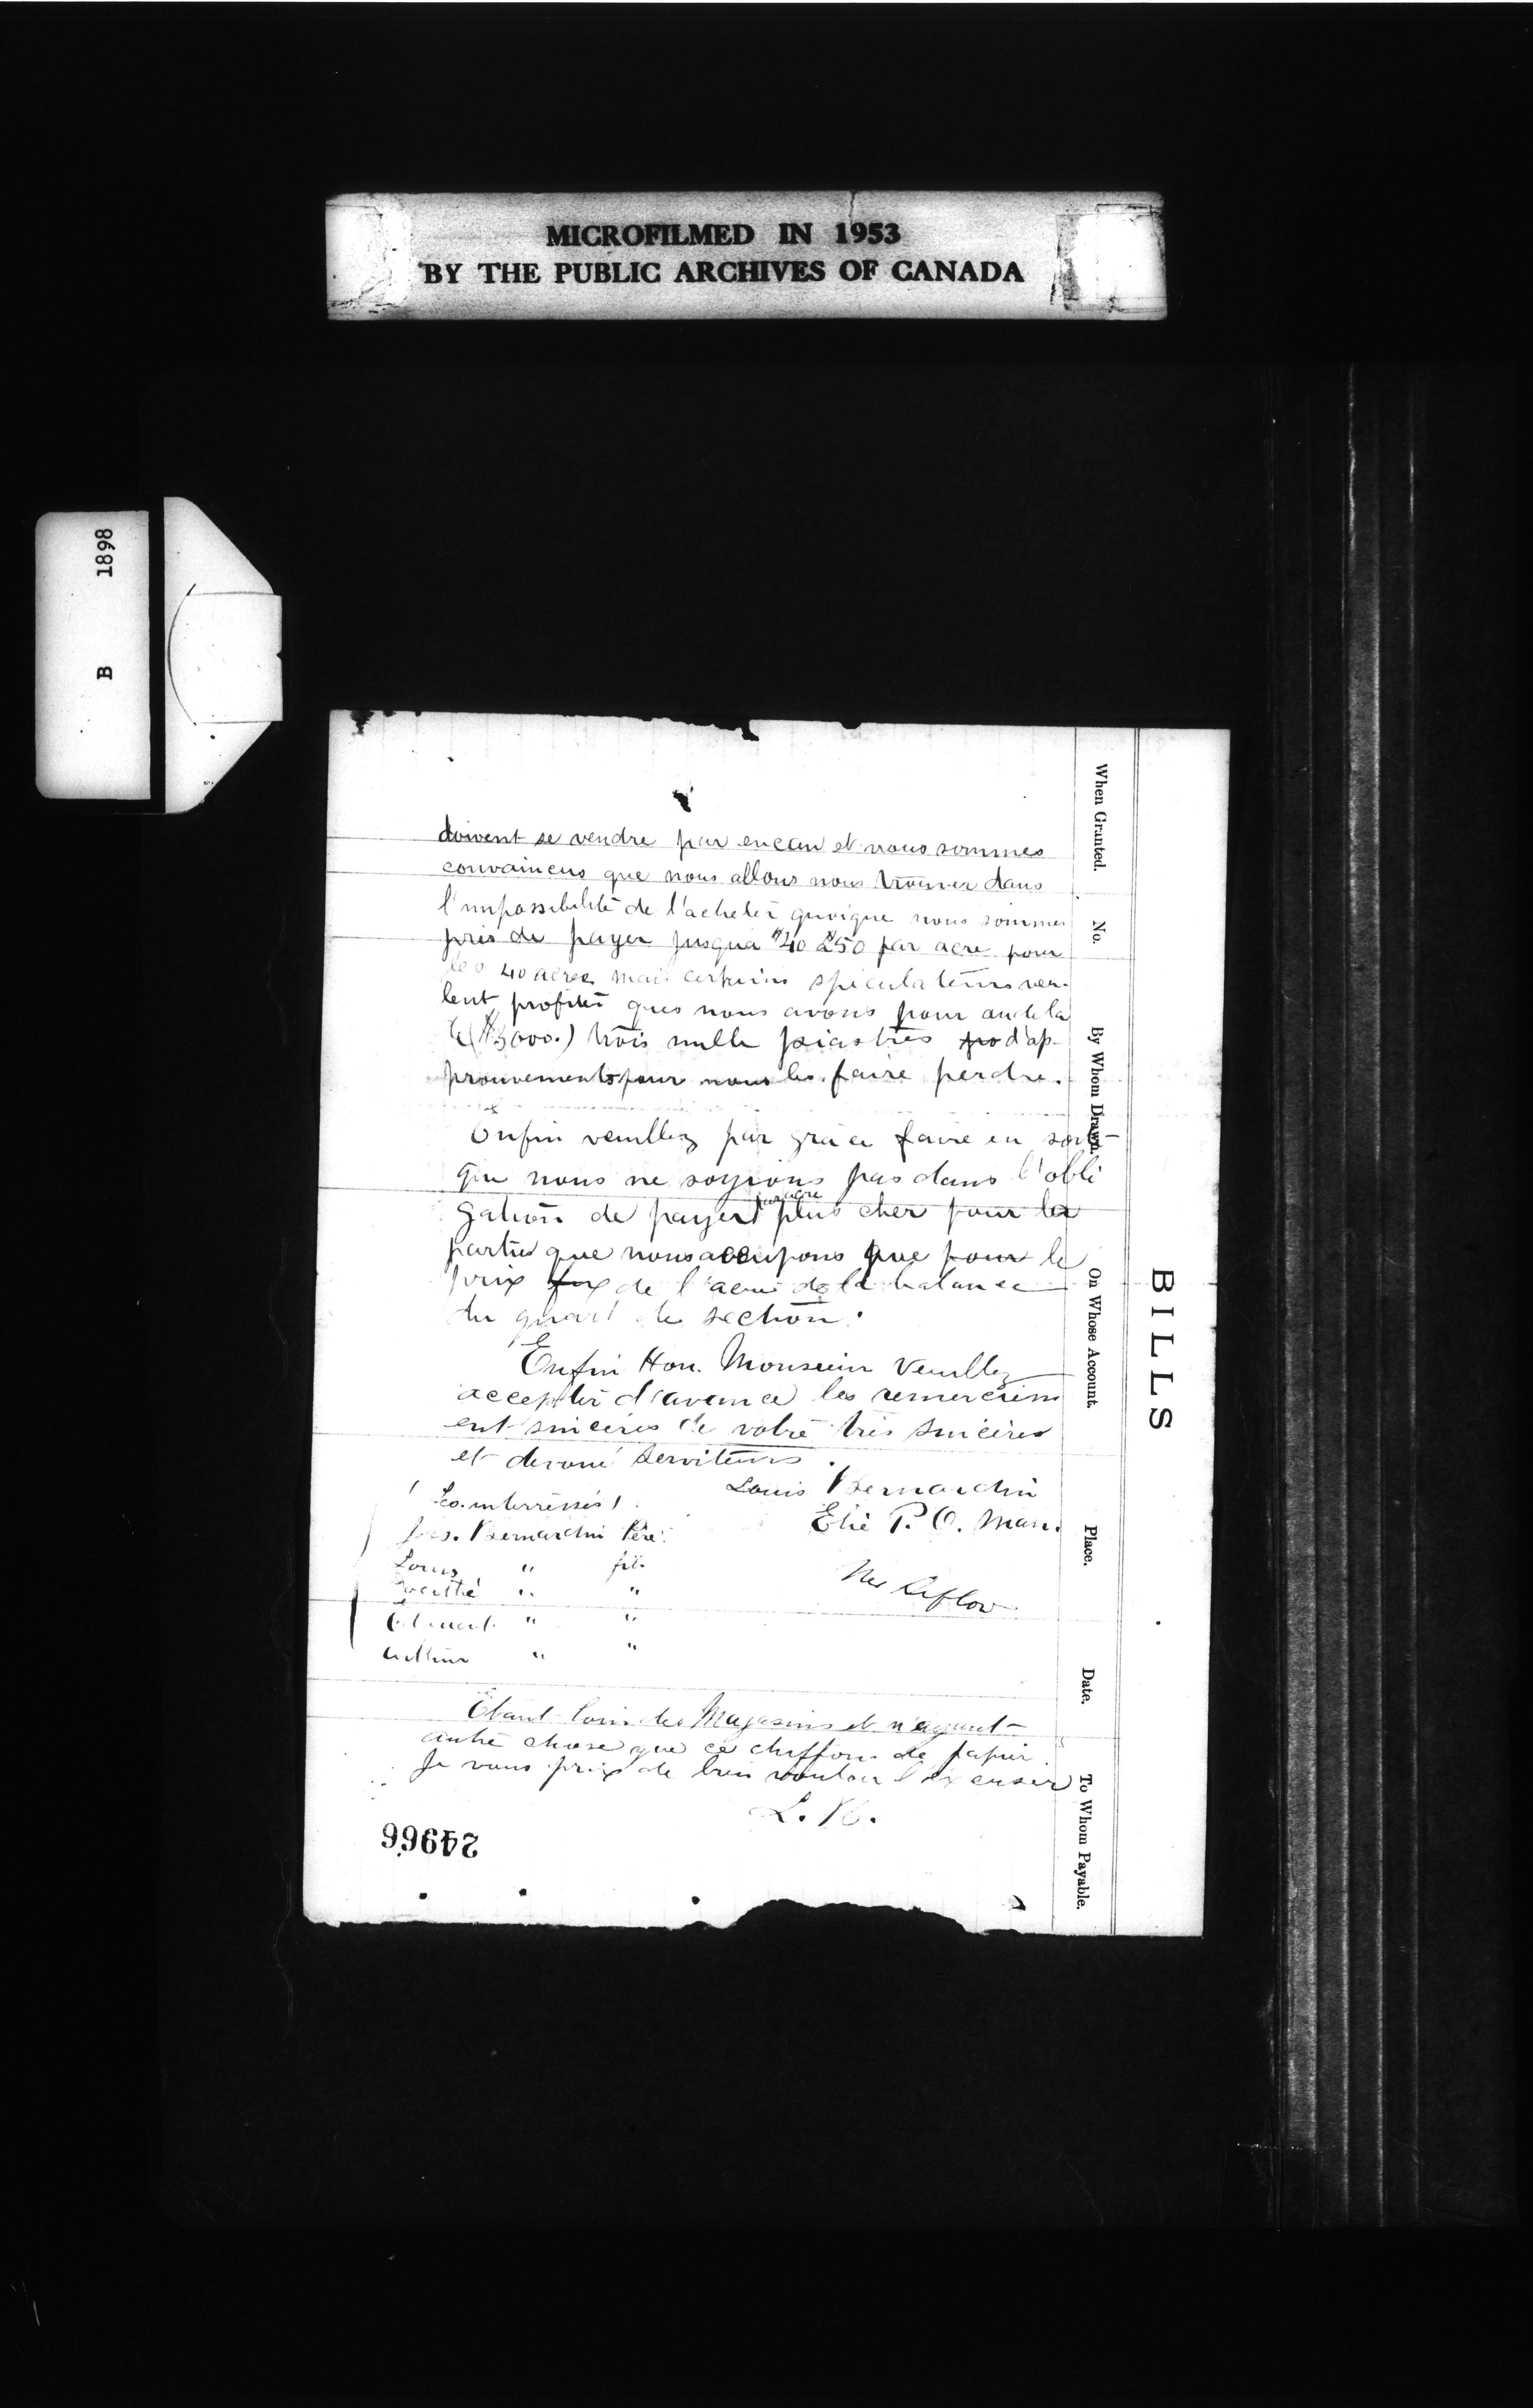 MICROFILMED IN 1953
BY THE PUBLIC ARCHIVES OF CANADA
B 1898
BILLS
When Granted.
No.
By Whom Drawn.
On Whose Account.
Place.
Date.
To Whom Payable.
doivent se vendre par encan et nous sommes
convaincus que nous allons nous trouver dans
l'impossibilité de l'acheter quoique nous sommes
pris de payer jusqua $40 a $50 par acre pour
les 40 acres mais certains spéculateurs veu-
lent profiter ques nous avons pour audela
($3000.) trois mille piastres d'ap-
prouvements pour nous les faire perdre.
Enfin veuillez par grace faire en sorte
que nous ne soyions pas dans l'obli
gation de payer par acre plus cher pour la
partie que nous occupons que pour le
prix de l'acre de la balance
du quart de section.
Enfin Hon. Monsieur Veuillez
accepter d'avance les remerciem
ent sincères de votre très sincères
et devoué serviteurs.
Louis Bernardin
Elie P. O. Man.
(Co. interressés)
Jos. Bernardin Père
Louis " fils
" "
" "
Arthur " "
Étant loin des Magasins et n'ayant
autre chose que ce chiffon de papier
Je vous prie de bien vouloir l'excuser
L. B.
24966